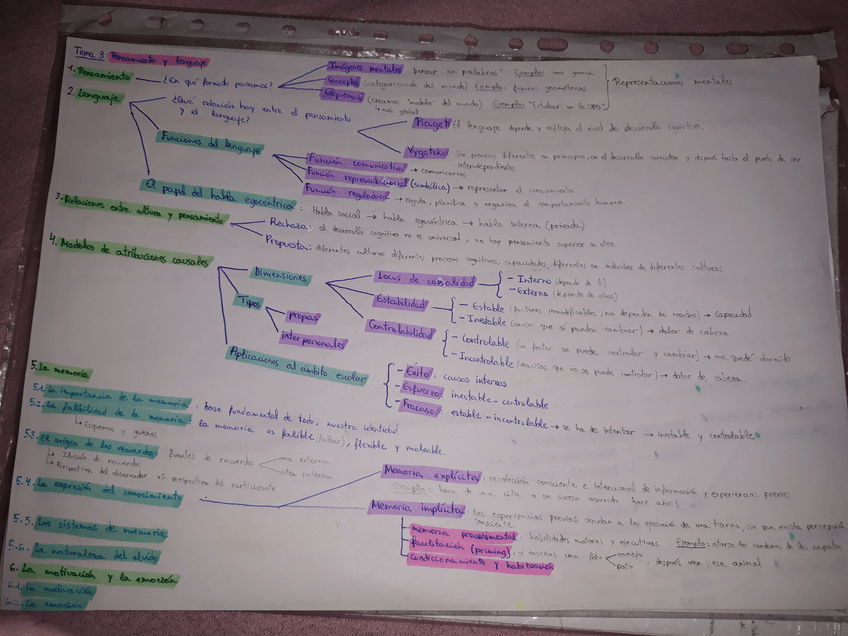 Tema 3: Pensamiento y lenguaje
1. Pensamiento
¿En qué formato pensamos?
Imágenes mentales "pensar sin palabras" Ejemplo: una goma
Conceptos (categorización del mundo) Ejemplo: figuras geométricas
Esquemas (creamos "modelos" del mundo) Ejemplo: "Estudiar en la
↳ más global
Representaciones mentales
2. Lenguaje
¿Qué relación hay entre el pensamiento y el lenguaje?
Piaget El lenguaje depende y refleja el nivel de desarrollo cognitivo.
Vygotski Son procesos diferentes en principio, en el desarrollo coinciden y después hasta el punto de ser interdependientes
Funciones del lenguaje
Función comunicativa → comunicarnos
Función representacional (simbólica) → representar el conocimiento.
Función reguladora → regula, planifica y organiza el comportamiento humano.
El papel del habla egocéntrica: Habla social → habla egocéntrica → habla interna (privada)
3. Relaciones entre cultura y pensamiento
Rechaza: el desarrollo cognitivo no es universal, no hay pensamiento superior a otro.
Propuesta: diferentes culturas diferentes procesos cognitivos, capacidades, diferencias en individuos de diferentes culturas.
4. Modelos de atribuciones causales
Dimensiones
Locus de causalidad
- Interno (depende de ti)
- Externo (depende de otros)
Estabilidad
- Estable (factores inmodificables, no dependen de nosotros) → capacidad
- Inestable (causas que sí pueden cambiar) → dolor de cabeza
Controlabilidad
- Controlable (un factor se puede controlar y cambiar) → me quedé dormido
- Incontrolable (causas que no se puede controlar) → dolor de cabeza.
Tipos
propias
interpersonales
Aplicaciones al ámbito escolar
- Éxito: causas internas
- Esfuerzo: inestable - controlable
- Fracaso: estable - incontrolable → se ha de intentar → inestable y controlable
5. La memoria
5.1. La importancia de la memoria: base fundamental de todo, nuestra identidad
5.2. La falibilidad de la memoria: la memoria es falible (fallar), flexible y moldeable.
↳ Esquemas y guiones
5.3. El origen de los recuerdos
fuentes de recuerdo
una externa
otra interna
↳ Ilusión de recuerdo
↳ Perspectiva del observador vs perspectiva del participante
5.4. La expresión del conocimiento
Memoria explícita: recolección consciente e intencional de información y experiencias previas
Ejemplo: hora de una cita o un suceso ocurrido hace años
Memoria implícita: las experiencias previas ayudan a la ejecución de una tarea, sin que exista percepción consciente.
memoria procedimental: habilidades motoras y ejecutivas Ejemplo: atarse los cordones de los zapatos
facilitación (priming): si enseñas una foto
conejo
pato
, después ven ese animal
condicionamiento y habituación
5.5. Los sistemas de memoria
5.6. La naturaleza del olvido
6. La motivación y la emoción
6.1. La motivación
6.2. La emoción